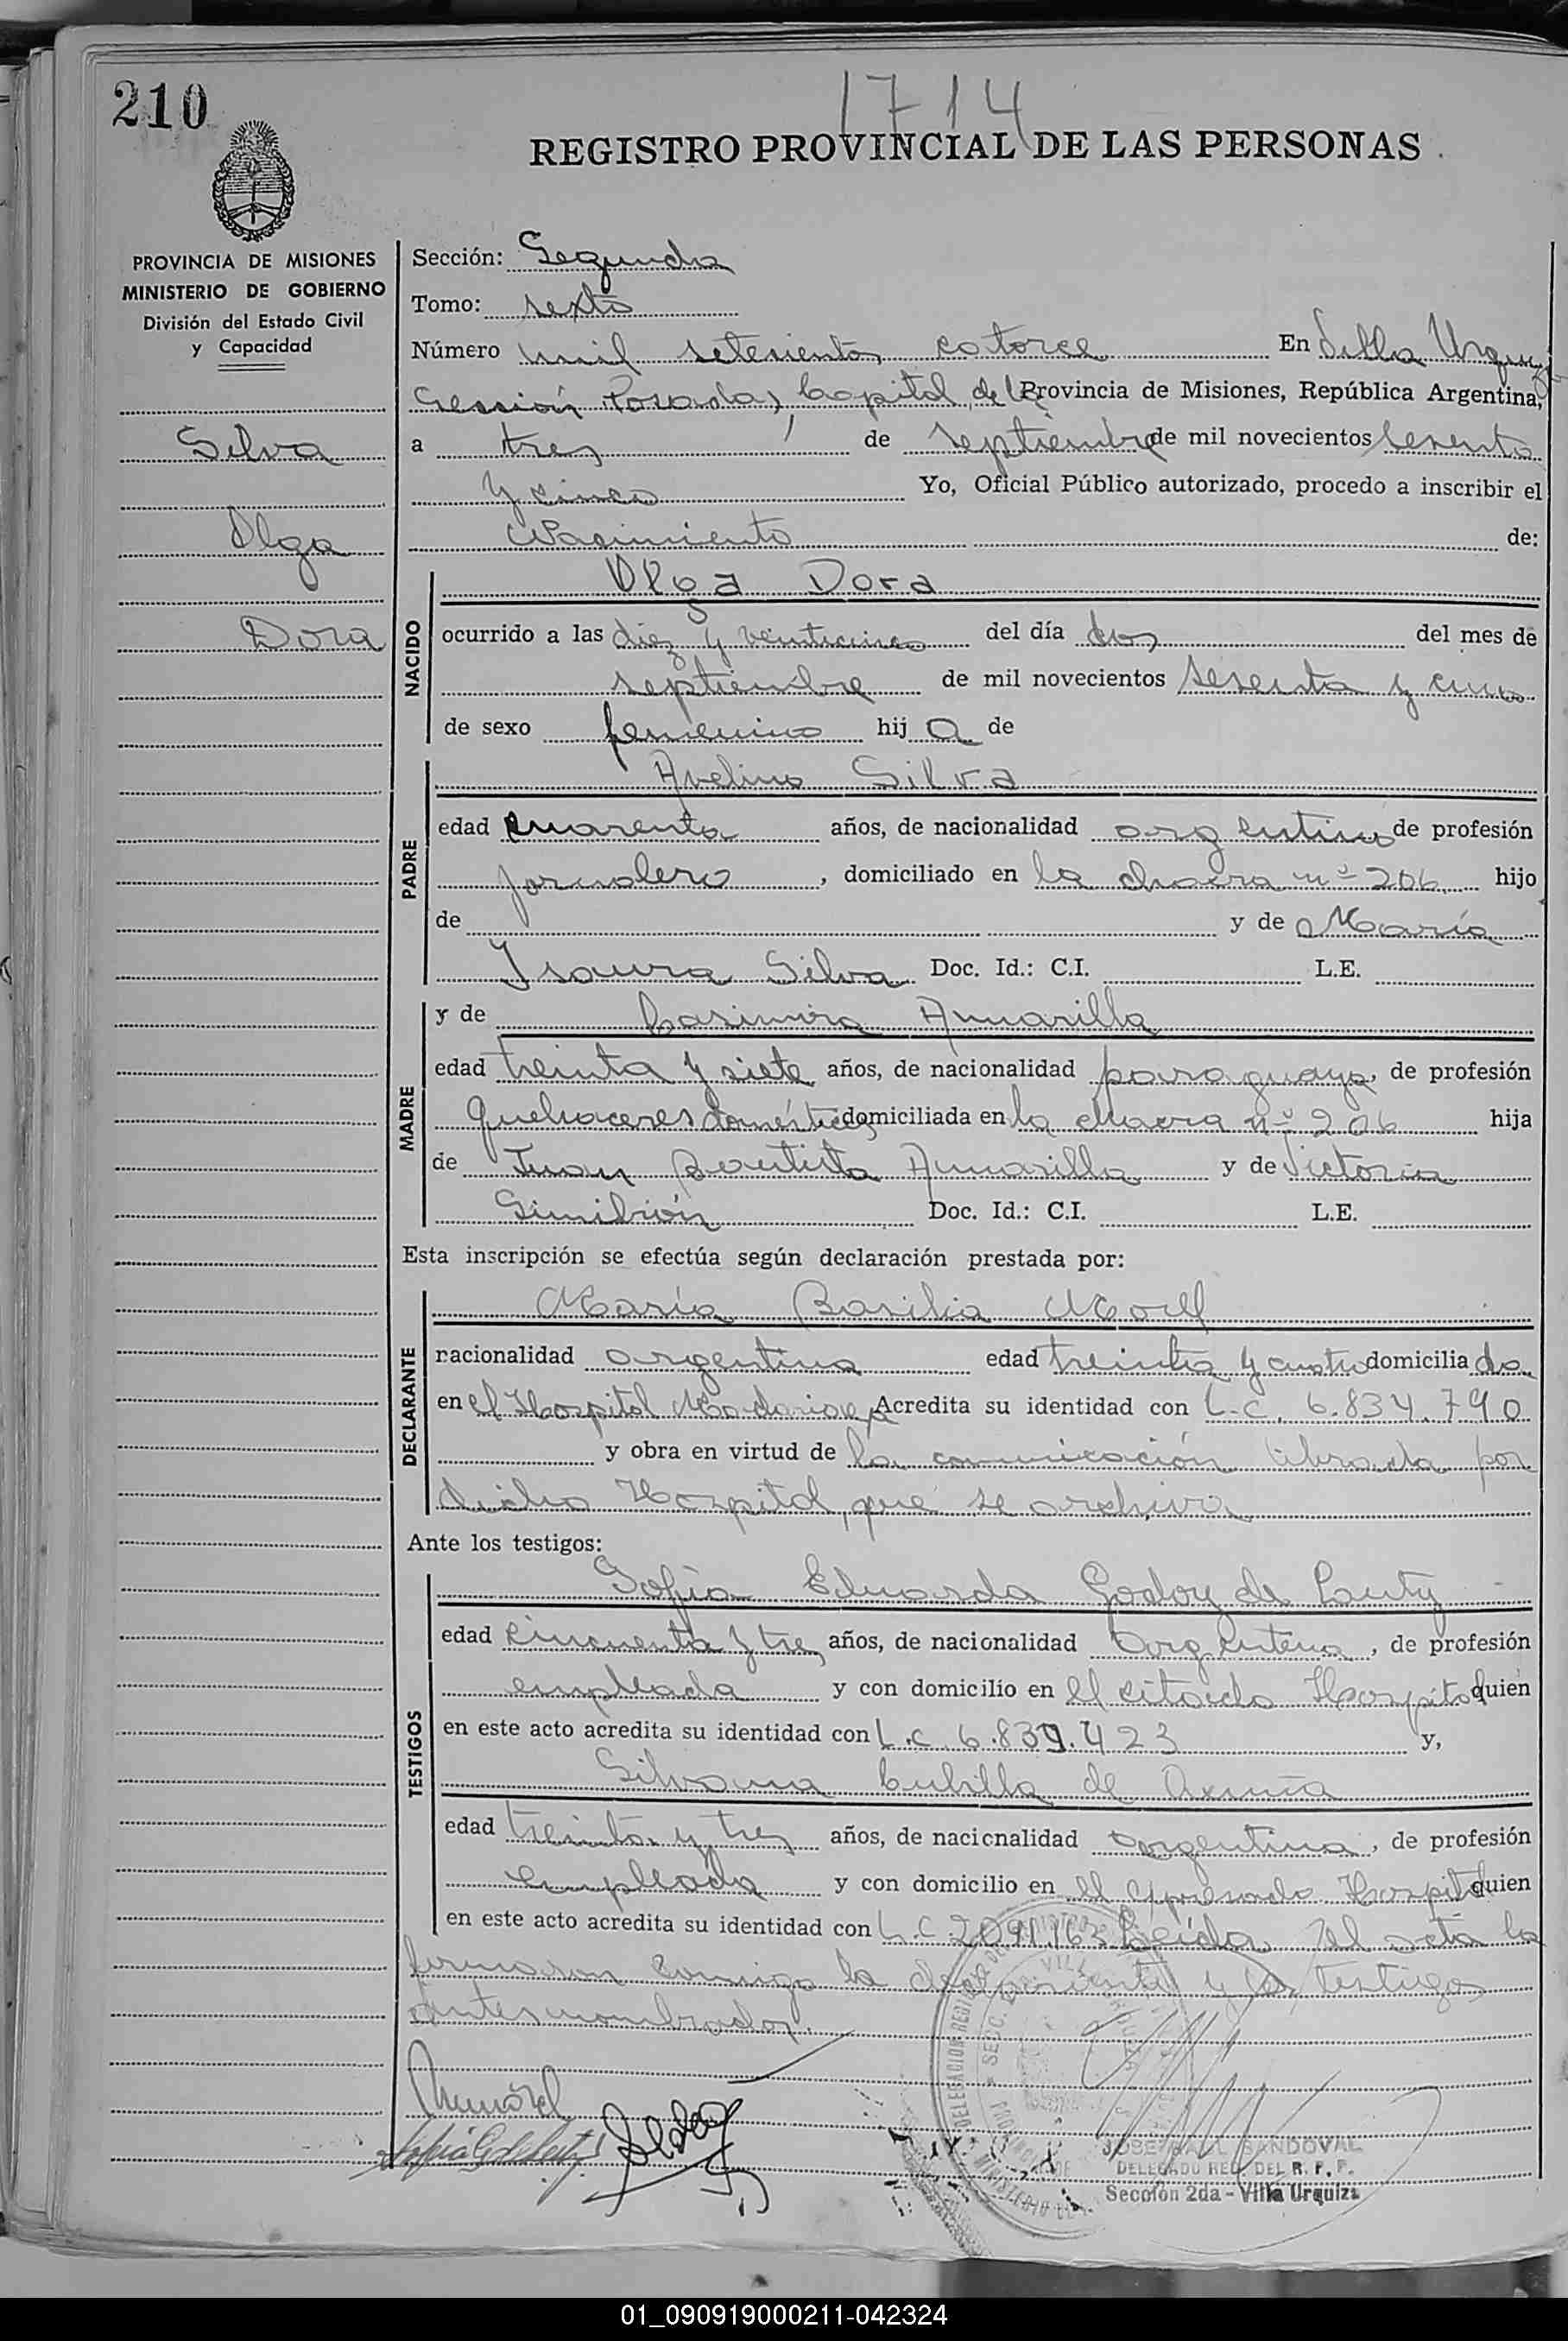 210
1714
REGISTRO PROVINCIAL DE LAS PERSONAS
PROVINCIA DE MISIONES
MINISTERIO DE GOBIERNO
División del Estado Civil
y Capacidad
Silva
Olga
Dora
Sección: Segunda
Tomo: sexto
Número mil setecientos catorce En Villa Urquiza
Sección Posadas, Capital de la Provincia de Misiones, República Argentina,
a tres de septiembre de mil novecientos sesenta
y cinco Yo, Oficial Público autorizado, procedo a inscribir el
Nacimiento de:
NACIDO
Olga Dora
ocurrido a las diez y veinticinco del día dos del mes de
septiembre de mil novecientos sesenta y cinco
de sexo femenino hij a de
PADRE
Avelino Silva
edad cuarenta años, de nacionalidad argentino de profesión
jornalero, domiciliado en la chacra nº 206 hijo
de y de María
Isaura Silva Doc. Id.: C.I. L.E.
MADRE
y de Casimira Amarilla
edad treinta y siete años, de nacionalidad paraguaya, de profesión
quehaceres domésticos domiciliada en la chacra nº 206 hija
de Juan Bautista Amarilla y de Victoria
Doc. Id.: C.I. L.E.
Esta inscripción se efectúa según declaración prestada por:
DECLARANTE
María Basilia Morel
nacionalidad argentina edad treinta y cuatro domicilia da
en el Hospital Madariaga Acredita su identidad con L.C. 6.834.790
y obra en virtud de la comunicación librada por
dicho Hospital que se archiva
Ante los testigos:
TESTIGOS
Sofía Eduarda Godoy de
edad cincuenta y tres años, de nacionalidad argentina, de profesión
empleada y con domicilio en el citado Hospital quien
en este acto acredita su identidad con L.C 6.839.423 y,
Silvana Cubilla de
edad treinta y tres años, de nacicnalidad argentina, de profesión
empleada y con domicilio en el expresado Hospital quien
en este acto acredita su identidad con L.C 2.091.163 Leída el acta la
firmaron conmigo la declarante y los testigos
antes nombrados.
JOSE RAUL SANDOVAL
DELEGADO REG. DEL R. P. P.
Sección 2da - Villa Urquiza
01_090919000211-042324